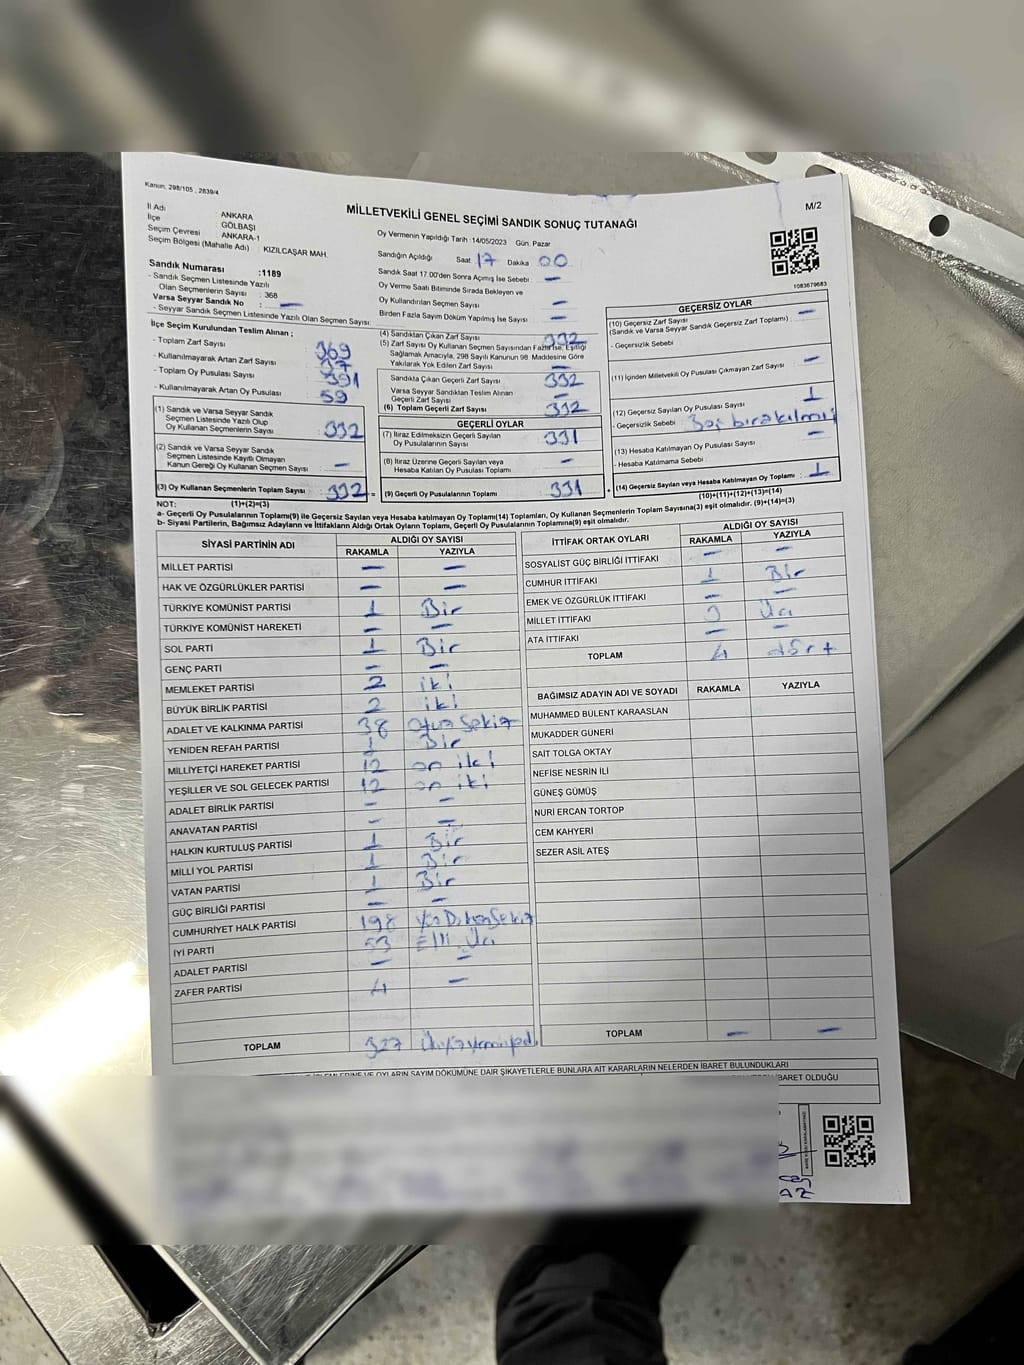 Kanun, 298/105 , 2839/4
MİLLETVEKİLİ GENEL SEÇİMİ SANDIK SONUÇ TUTANAĞI
M/2
İl Adı : ANKARA
İlçe : GÖLBAŞI
Seçim Çevresi : ANKARA-1
Seçim Bölgesi (Mahalle Adı) : KIZILCAŞAR MAH.
Sandık Numarası :1189
- Sandık Seçmen Listesinde Yazılı
Olan Seçmenlerin Sayısı : 368
Varsa Seyyar Sandık No : —
- Seyyar Sandık Seçmen Listesinde Yazılı Olan Seçmen Sayısı:
Oy Vermenin Yapıldığı Tarih :14/05/2023 Gün. Pazar
Sandığın Açıldığı Saat 17 Dakika 00
Sandık Saat 17.00'den Sonra Açımış İse Sebebi : —
Oy Verme Saati Bitiminde Sırada Bekleyen ve
Oy Kullandırılan Seçmen Sayısı : —
Birden Fazla Sayım Döküm Yapılmış İse Sayısı : —
1083679683
İlçe Seçim Kurulundan Teslim Alınan ;
- Toplam Zarf Sayısı : 369
- Kullanılmayarak Artan Zarf Sayısı : 37
- Toplam Oy Pusulası Sayısı : 391
- Kullanılmayarak Artan Oy Pusulası : 59
(1) Sandık ve Varsa Seyyar Sandık
Seçmen Listesinde Yazılı Olup
Oy Kullanan Seçmenlerin Sayısı : 332
(2) Sandık ve Varsa Seyyar Sandık
Seçmen Listesinde Kayıtlı Olmayan
Kanun Gereği Oy Kullanan Seçmen Sayısı : —
(3) Oy Kullanan Seçmenlerin Toplam Sayısı : 332 =
(4) Sandıktan Çıkan Zarf Sayısı : 332
(5) Zarf Sayısı Oy Kullanan Seçmen Sayısından Fazla İse, Eşitliği
Sağlamak Amacıyla, 298 Sayılı Kanunun 98. Maddesine Göre
Yakılarak Yok Edilen Zarf Sayısı : —
Sandıkta Çıkan Geçerli Zarf Sayısı : 332
Varsa Seyyar Sandıktan Teslim Alınan
Geçerli Zarf Sayısı : —
(6) Toplam Geçerli Zarf Sayısı : 332
GEÇERLİ OYLAR
(7) İtiraz Edilmeksizin Geçerli Sayılan
Oy Pusulalarının Sayısı : 331
(8) İtiraz Üzerine Geçerli Sayılan veya
Hesaba Katılan Oy Pusulası Toplamı : —
(9) Geçerli Oy Pusulalarının Toplamı : 331 +
GEÇERSİZ OYLAR
(10) Geçersiz Zarf Sayısı
(Sandık ve Varsa Seyyar Sandık Geçersiz Zarf Toplamı) : —
- Geçersizlik Sebebi :
(11) İçinden Milletvekili Oy Pusulası Çıkmayan Zarf Sayısı : —
(12) Geçersiz Sayılan Oy Pusulası Sayısı : 1
- Geçersizlik Sebebi : Boş bırakılmış
(13) Hesaba Katılmayan Oy Pusulası Sayısı : —
- Hesaba Katılmama Sebebi :
(14) Geçersiz Sayılan veya Hesaba Katılmayan Oy Toplamı : 1
NOT: (1)+(2)=(3)
(10)+(11)+(12)+(13)=(14)
a- Geçerli Oy Pusulalarının Toplamı(9) ile Geçersiz Sayılan veya Hesaba katılmayan Oy Toplamı(14) Toplamları, Oy Kullanan Seçmenlerin Toplam Sayısına(3) eşit olmalıdır. (9)+(14)=(3)
b- Siyasi Partilerin, Bağımsız Adayların ve İttifakların Aldığı Ortak Oyların Toplamı, Geçerli Oy Pusulalarının Toplamına(9) eşit olmalıdır.
SİYASİ PARTİNİN ADI ALDIĞI OY SAYISI
RAKAMLA YAZIYLA
MİLLET PARTİSİ — —
HAK VE ÖZGÜRLÜKLER PARTİSİ — —
TÜRKİYE KOMÜNİST PARTİSİ 1 Bir
TÜRKİYE KOMÜNİST HAREKETİ — —
SOL PARTİ 1 Bir
GENÇ PARTİ — —
MEMLEKET PARTİSİ 2 iki
BÜYÜK BİRLİK PARTİSİ 2 iki
ADALET VE KALKINMA PARTİSİ 38 otuz sekiz
YENİDEN REFAH PARTİSİ 1 Bir
MİLLİYETÇİ HAREKET PARTİSİ 12 on iki
YEŞİLLER VE SOL GELECEK PARTİSİ 12 on iki
ADALET BİRLİK PARTİSİ — —
ANAVATAN PARTİSİ — —
HALKIN KURTULUŞ PARTİSİ 1 Bir
MİLLİ YOL PARTİSİ 1 Bir
VATAN PARTİSİ 1 Bir
GÜÇ BİRLİĞİ PARTİSİ — —
CUMHURİYET HALK PARTİSİ 198
İYİ PARTİ 53 Elli Üç
ADALET PARTİSİ — —
ZAFER PARTİSİ 4 —
TOPLAM 327
İTTİFAK ORTAK OYLARI ALDIĞI OY SAYISI
RAKAMLA YAZIYLA
SOSYALİST GÜÇ BİRLİĞİ İTTİFAKI — —
CUMHUR İTTİFAKI 1 Bir
EMEK VE ÖZGÜRLÜK İTTİFAKI — —
MİLLET İTTİFAKI 3 Üç
ATA İTTİFAKI — —
TOPLAM 4 dört
BAĞIMSIZ ADAYIN ADI VE SOYADI RAKAMLA YAZIYLA
MUHAMMED BÜLENT KARAASLAN
MUKADDER GÜNERİ
SAİT TOLGA OKTAY
NEFİSE NESRİN İLİ
GÜNEŞ GÜMÜŞ
NURİ ERCAN TORTOP
CEM KAHYERİ
SEZER ASİL ATEŞ
TOPLAM — —
İŞLEMLERİNE VE OYLARIN SAYIM DÖKÜMÜNE DAİR ŞİKAYETLERLE BUNLARA AİT KARARLARIN NELERDEN İBARET BULUNDUKLARI
BARET OLDUĞU